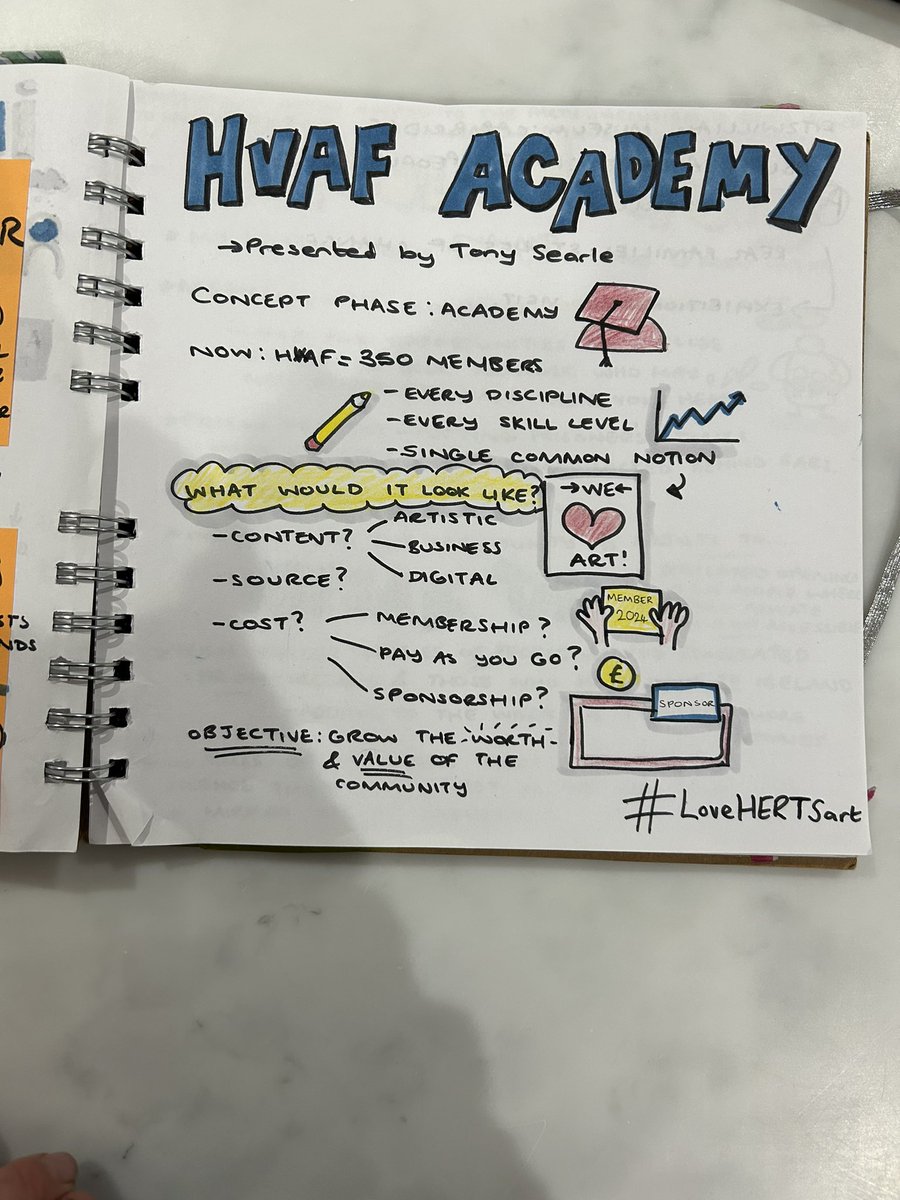 HVAF ACADEMY
→Presented by Tony Searle
CONCEPT PHASE: ACADEMY
NOW: HVAF = 350 MEMBERS
- EVERY DISCIPLINE
- EVERY SKILL LEVEL
- SINGLE COMMON NOTION
WHAT WOULD IT LOOK LIKE?
→WE←
ART!
- CONTENT?
ARTISTIC
BUSINESS
DIGITAL
- SOURCE?
- COST?
MEMBERSHIP?
PAY AS YOU GO?
SPONSORSHIP?
MEMBER
2024
£
SPONSOR
OBJECTIVE: GROW THE WORTH
& VALUE OF THE
COMMUNITY
#LoveHERTSart